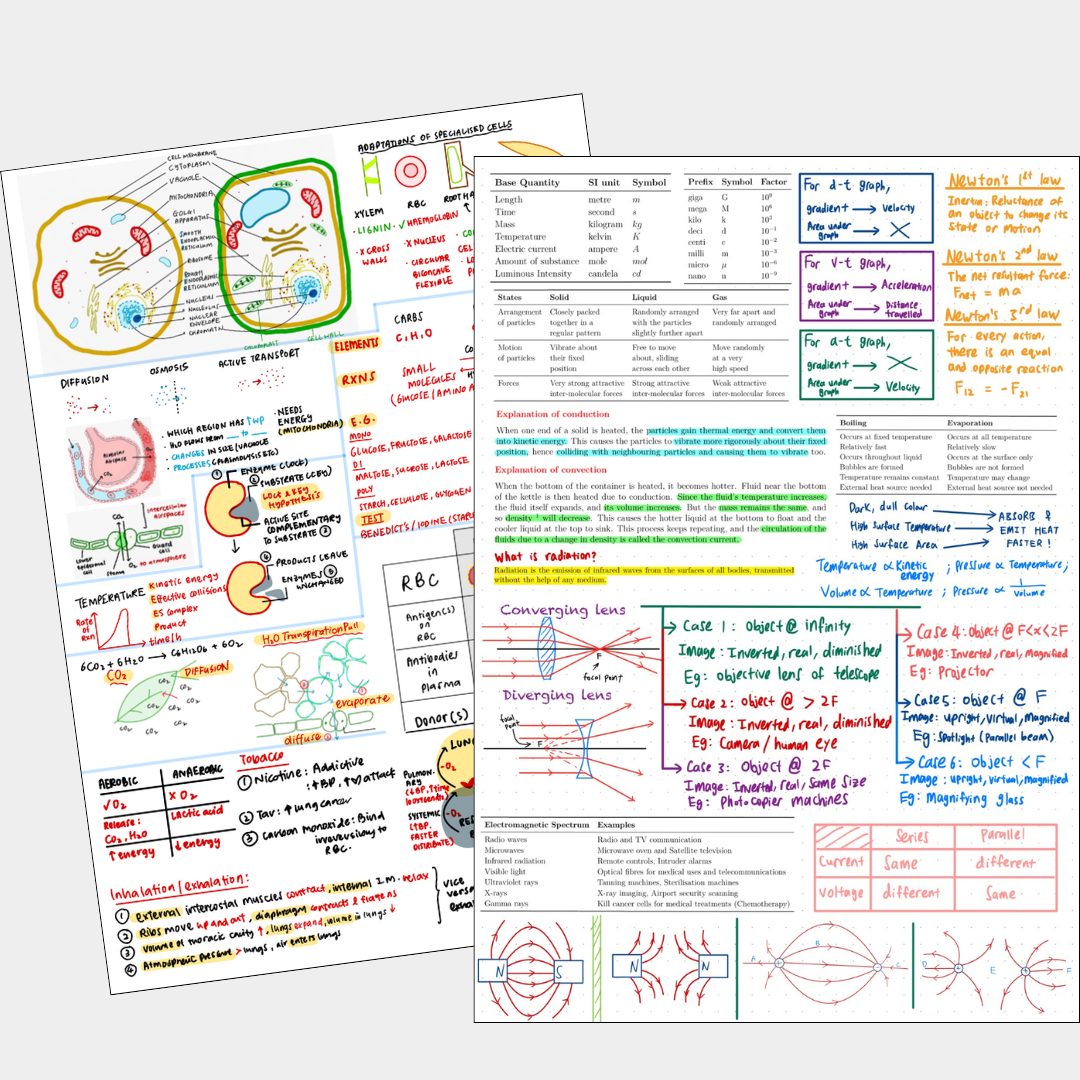 ADAPTATIONS OF SPECIALISED CELLS
CELL MEMBRANE
CYTOPLASM
VACUOLE
MITOCHONDRIA
GOLGI
APPARATUS
SMOOTH
ENDOPLASMIC
RETICULUM
RIBOSOME
ROUGH
ENDOPLASMIC
RETICULUM
NUCLEUS
NUCLEOLUS
NUCLEAR
ENVELOPE
CHROMATIN
CHLOROPLAST
CELL WALL
XYLEM
RBC
ROOT HA
· LIGNIN
✓ HAEMOGLOBIN
· X CROSS
WALLS
· X NUCLEUS
· CIRCULAR
BICONCAVE
FLEXIBLE
DIFFUSION
OSMOSIS
ACTIVE TRANSPORT
· WHICH REGION HAS ↑WP
· H2O FLOWS FROM __ to __
· CHANGES IN SIZE/VACUOLE
· PROCESSES (PLASMOLYSIS ETC)
· NEEDS
ENERGY
(MITOCHONDRIA)
ELEMENTS
CARBS
C, H, O
RXNS
SMALL
MOLECULES
(GLUCOSE / AMINO A
E.G.
MONO
GLUCOSE, FRUCTOSE, GALACTOSE
DI
MALTOSE, SUCROSE, LACTOSE
POLY
STARCH, CELLULOSE, GLYCOGEN
TEST
BENEDICT'S / IODINE (STARC
① ENZYME (LOCK)
② SUBSTRATE (KEY)
LOCK & KEY
HYPOTHESIS
ACTIVE SITE
COMPLEMENTARY
TO SUBSTRATE ③
④ PRODUCTS LEAVE
ENZYMES ⑤
UNCHANGED
ALVEOLAR
AIRSPACE
CO2
Intercellular
airspaces
Lower
epidermal
cell
Stoma
O2 to atmosphere
Guard
cell
TEMPERATURE
Kinetic energy
Effective collisions
ES complex
Product
Rate
of
Rxn
time/h
6CO2 + 6H2O → C6H12O6 + 6O2
CO2
DIFFUSION
CO2
CO2
CO2
CO2
CO2
CO2
H2O Transpiration Pull
evaporate
diffuse
RBC
Antigen(s)
on
RBC
Antibodies
in
Plasma
Donor(s)
AEROBIC
ANAEROBIC
✓ O2
X O2
Release:
CO2, H2O
Lactic acid
↑ energy
↓ energy
TOBACCO
① Nicotine: Addictive
: ↑BP, ↑♡ attack
② Tar: ↑ lung cancer
③ Carbon monoxide: Bind
irreversibly to
RBC.
LUNG
PULMON.
ARY
SYSTEMIC
(↑BP,
FASTER
DISTRIBUTE)
-O2
-O2
Inhalation / exhalation:
① External intercostal muscles contract, internal I.M. relax
② Ribs move up and out, diaphragm contracts & flattens
③ Volume of thoracic cavity ↑, lungs expand, volume in lungs ↓
④ Atmospheric pressure > lungs, air enters lungs
vice
versa
Base Quantity SI unit Symbol
Length metre m
Time second s
Mass kilogram kg
Temperature kelvin K
Electric current ampere A
Amount of substance mole mol
Luminous Intensity candela cd
Prefix Symbol Factor
giga G 10⁹
mega M 10⁶
kilo k 10³
deci d 10⁻¹
centi c 10⁻²
milli m 10⁻³
micro μ 10⁻⁶
nano n 10⁻⁹
For d-t graph,
gradient → Velocity
Area under
graph → X
For v-t graph,
gradient → Acceleration
Area under
graph → Distance
travelled
For a-t graph,
gradient → X
Area under
graph → Velocity
Newton's 1st law
Inertia: Reluctance of
an object to change its
state or Motion
Newton's 2nd law
The net resultant force:
Fnet = ma
Newton's 3rd law
For every action,
there is an equal
and opposite reaction
F12 = -F21
States Solid Liquid Gas
Arrangement Closely packed Randomly arranged Very far apart and
of particles together in a with the particles randomly arranged
regular pattern slightly further apart
Motion Vibrate about Free to move Move randomly
of particles their fixed about, sliding at a very
position across each other high speed
Forces Very strong attractive Strong attractive Weak attractive
inter-molecular forces inter-molecular forces inter-molecular forces
Explanation of conduction
When one end of a solid is heated, the particles gain thermal energy and convert them
into kinetic energy. This causes the particles to vibrate more rigorously about their fixed
position, hence colliding with neighbouring particles and causing them to vibrate too.
Explanation of convection
When the bottom of the container is heated, it becomes hotter. Fluid near the bottom
of the kettle is then heated due to conduction. Since the fluid's temperature increases,
the fluid itself expands, and its volume increases. But the mass remains the same, and
so density will decrease. This causes the hotter liquid at the bottom to float and the
cooler liquid at the top to sink. This process keeps repeating, and the circulation of the
fluids due to a change in density is called the convection current.
What is radiation?
Radiation is the emission of infrared waves from the surfaces of all bodies, transmitted
without the help of any medium.
Boiling Evaporation
Occurs at fixed temperature Occurs at all temperature
Relatively fast Relatively slow
Occurs throughout liquid Occurs at the surface only
Bubbles are formed Bubbles are not formed
Temperature remains constant Temperature may change
External heat source needed External heat source not needed
Dark, dull colour
High Surface Temperature
High Surface Area
ABSORB &
EMIT HEAT
FASTER!
Temperature ∝ Kinetic
energy ; Pressure ∝ Temperature;
Volume ∝ Temperature ; Pressure ∝ 1/Volume
Converging lens
F
focal point
Diverging lens
focal
point
F
Case 1: Object @ infinity
Image: Inverted, real, diminished
Eg: objective lens of telescope
Case 2: object @ > 2F
Image: Inverted, real, diminished
Eg: Camera / human eye
Case 3: Object @ 2F
Image: Inverted, real, Same size
Eg: Photocopier machines
Case 4: Object @ F<x<2F
Image: Inverted, real, Magnified
Eg: Projector
Case 5: object @ F
Image: upright, Virtual, Magnified
Eg: Spotlight (Parallel beam)
Case 6: object < F
Image: upright, virtual, magnified
Eg: Magnifying glass
Electromagnetic Spectrum Examples
Radio waves Radio and TV communication
Microwaves Microwave oven and Satellite television
Infrared radiation Remote controls, Intruder alarms
Visible light Optical fibres for medical uses and telecommunications
Ultraviolet rays Tanning machines, Sterilisation machines
X-rays X-ray imaging, Airport security scanning
Gamma rays Kill cancer cells for medical treatments (Chemotherapy)
Series Parallel
Current Same different
Voltage different Same
N S
N N
A B C
D E F